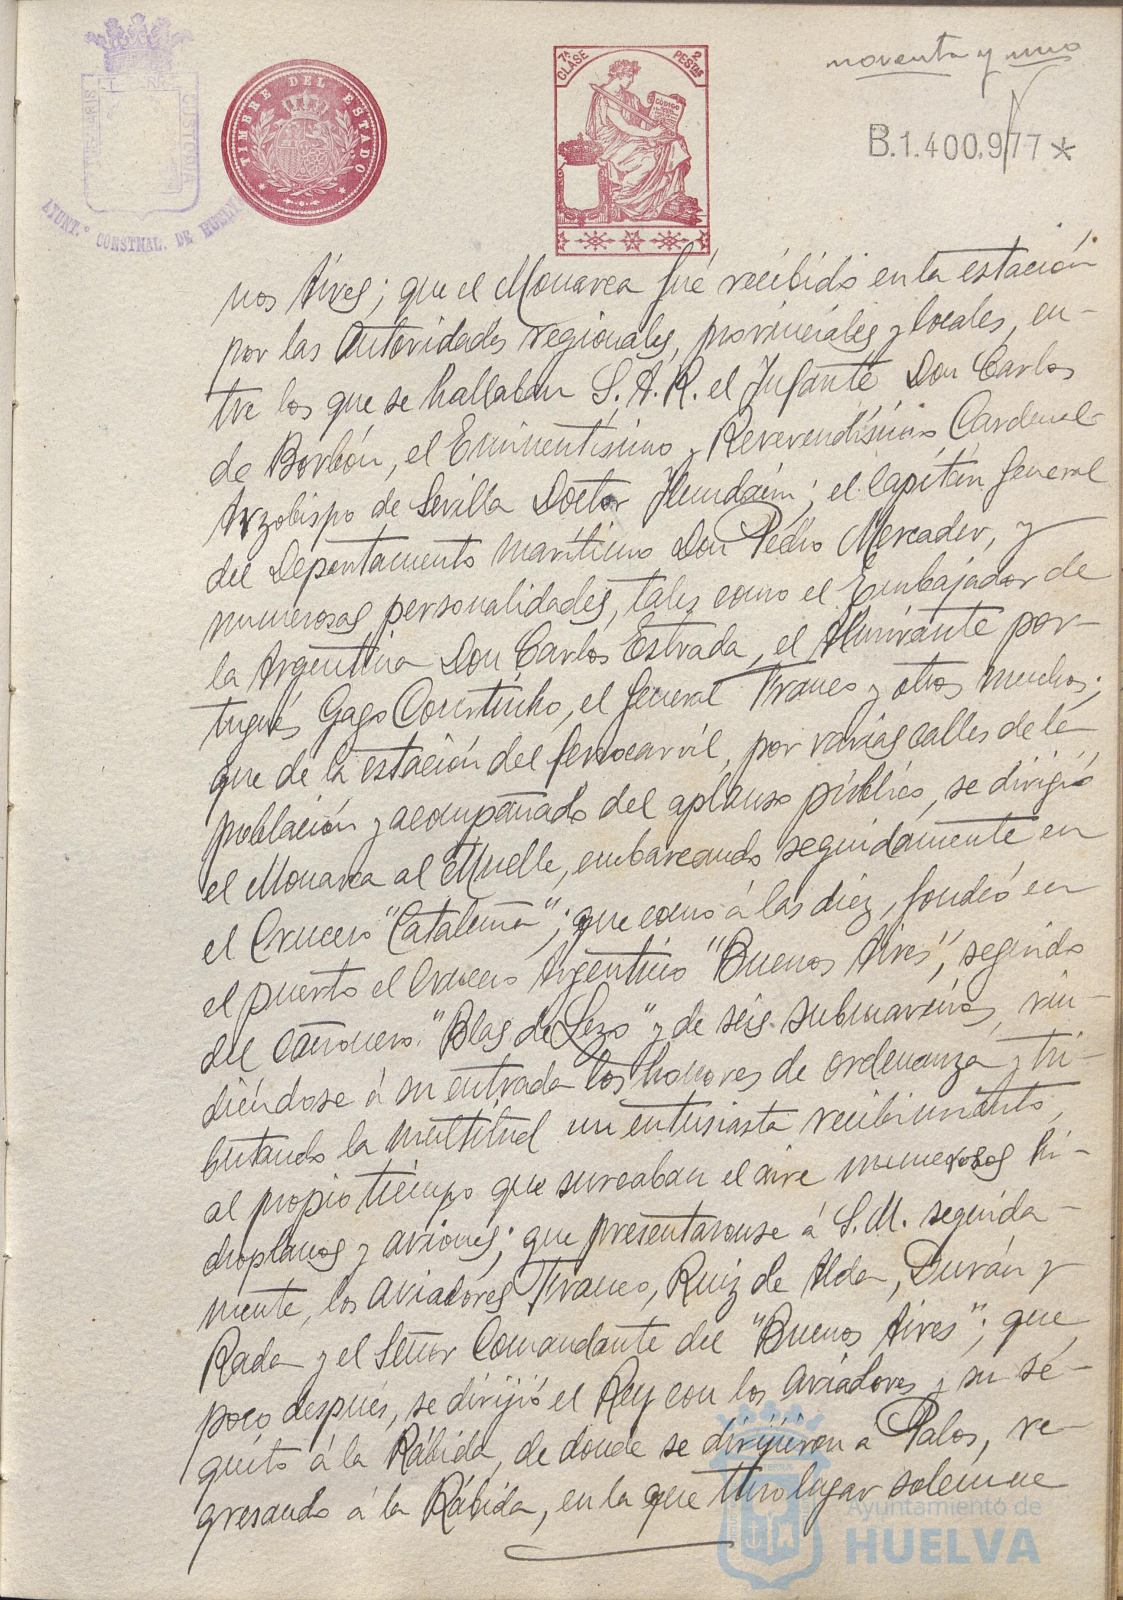 noventa y uno
PORTUS MARIS
CUSTODIA
AYUNT.º CONSTNAL. DE HUELVA
TIMBRE DEL ESTADO
7ª CLASE
2 PESTAS
CÓDIGO
B.1.400.977*
nos Aires; que el Monarca fué recibido en la estación
por las Autoridades regionales, provinciales y locales, en-
tre los que se hallaban S. A. R. el Infante Don Carlos
de Borbón, el Eminentísimo y Reverendísimo Cardenal-
Arzobispo de Sevilla Doctor Ilundáin; el Capitán General
del Departamento marítimo Don Pedro Mercader, y
numerosas personalidades, tales como el Embajador de
la Argentina Don Carlos Estrada, el Almirante por-
tugués Gago Couthinho, el General Franco y otros muchos;
que de la estación del ferrocarril, por varias calles de la
población y acompañado del aplauso público, se dirigió
el Monarca al Muelle, embarcando seguidamente en
el Crucero "Cataluña"; que como á las diez, fondeó en
el puerto el Crucero Argentino "Buenos Aires", seguido
del cañonero "Blas de Lezo" y de seis submarinos, rin-
diéndose á su entrada los honores de ordenanza y tri-
butando la multitud un entusiasta recibimiento,
al propio tiempo que surcaban el aire numerosos hi-
droplanos y aviones; que presentaronse á S. M. seguida-
mente, los aviadores Franco, Ruiz de Alda, Durán y
Rada y el Señor Comandante del "Buenos Aires"; que
poco después, se dirijió el Rey con los aviadores y su sé-
quito á la Rábida, de donde se dirijieron a Palos, re-
gresando á la Rábida, en la que tuvo lugar solemne
Ayuntamiento de
HUELVA